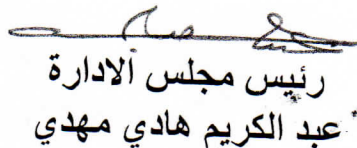 رئيس مجلس الادارة
عبد الكريم هادي مهدي